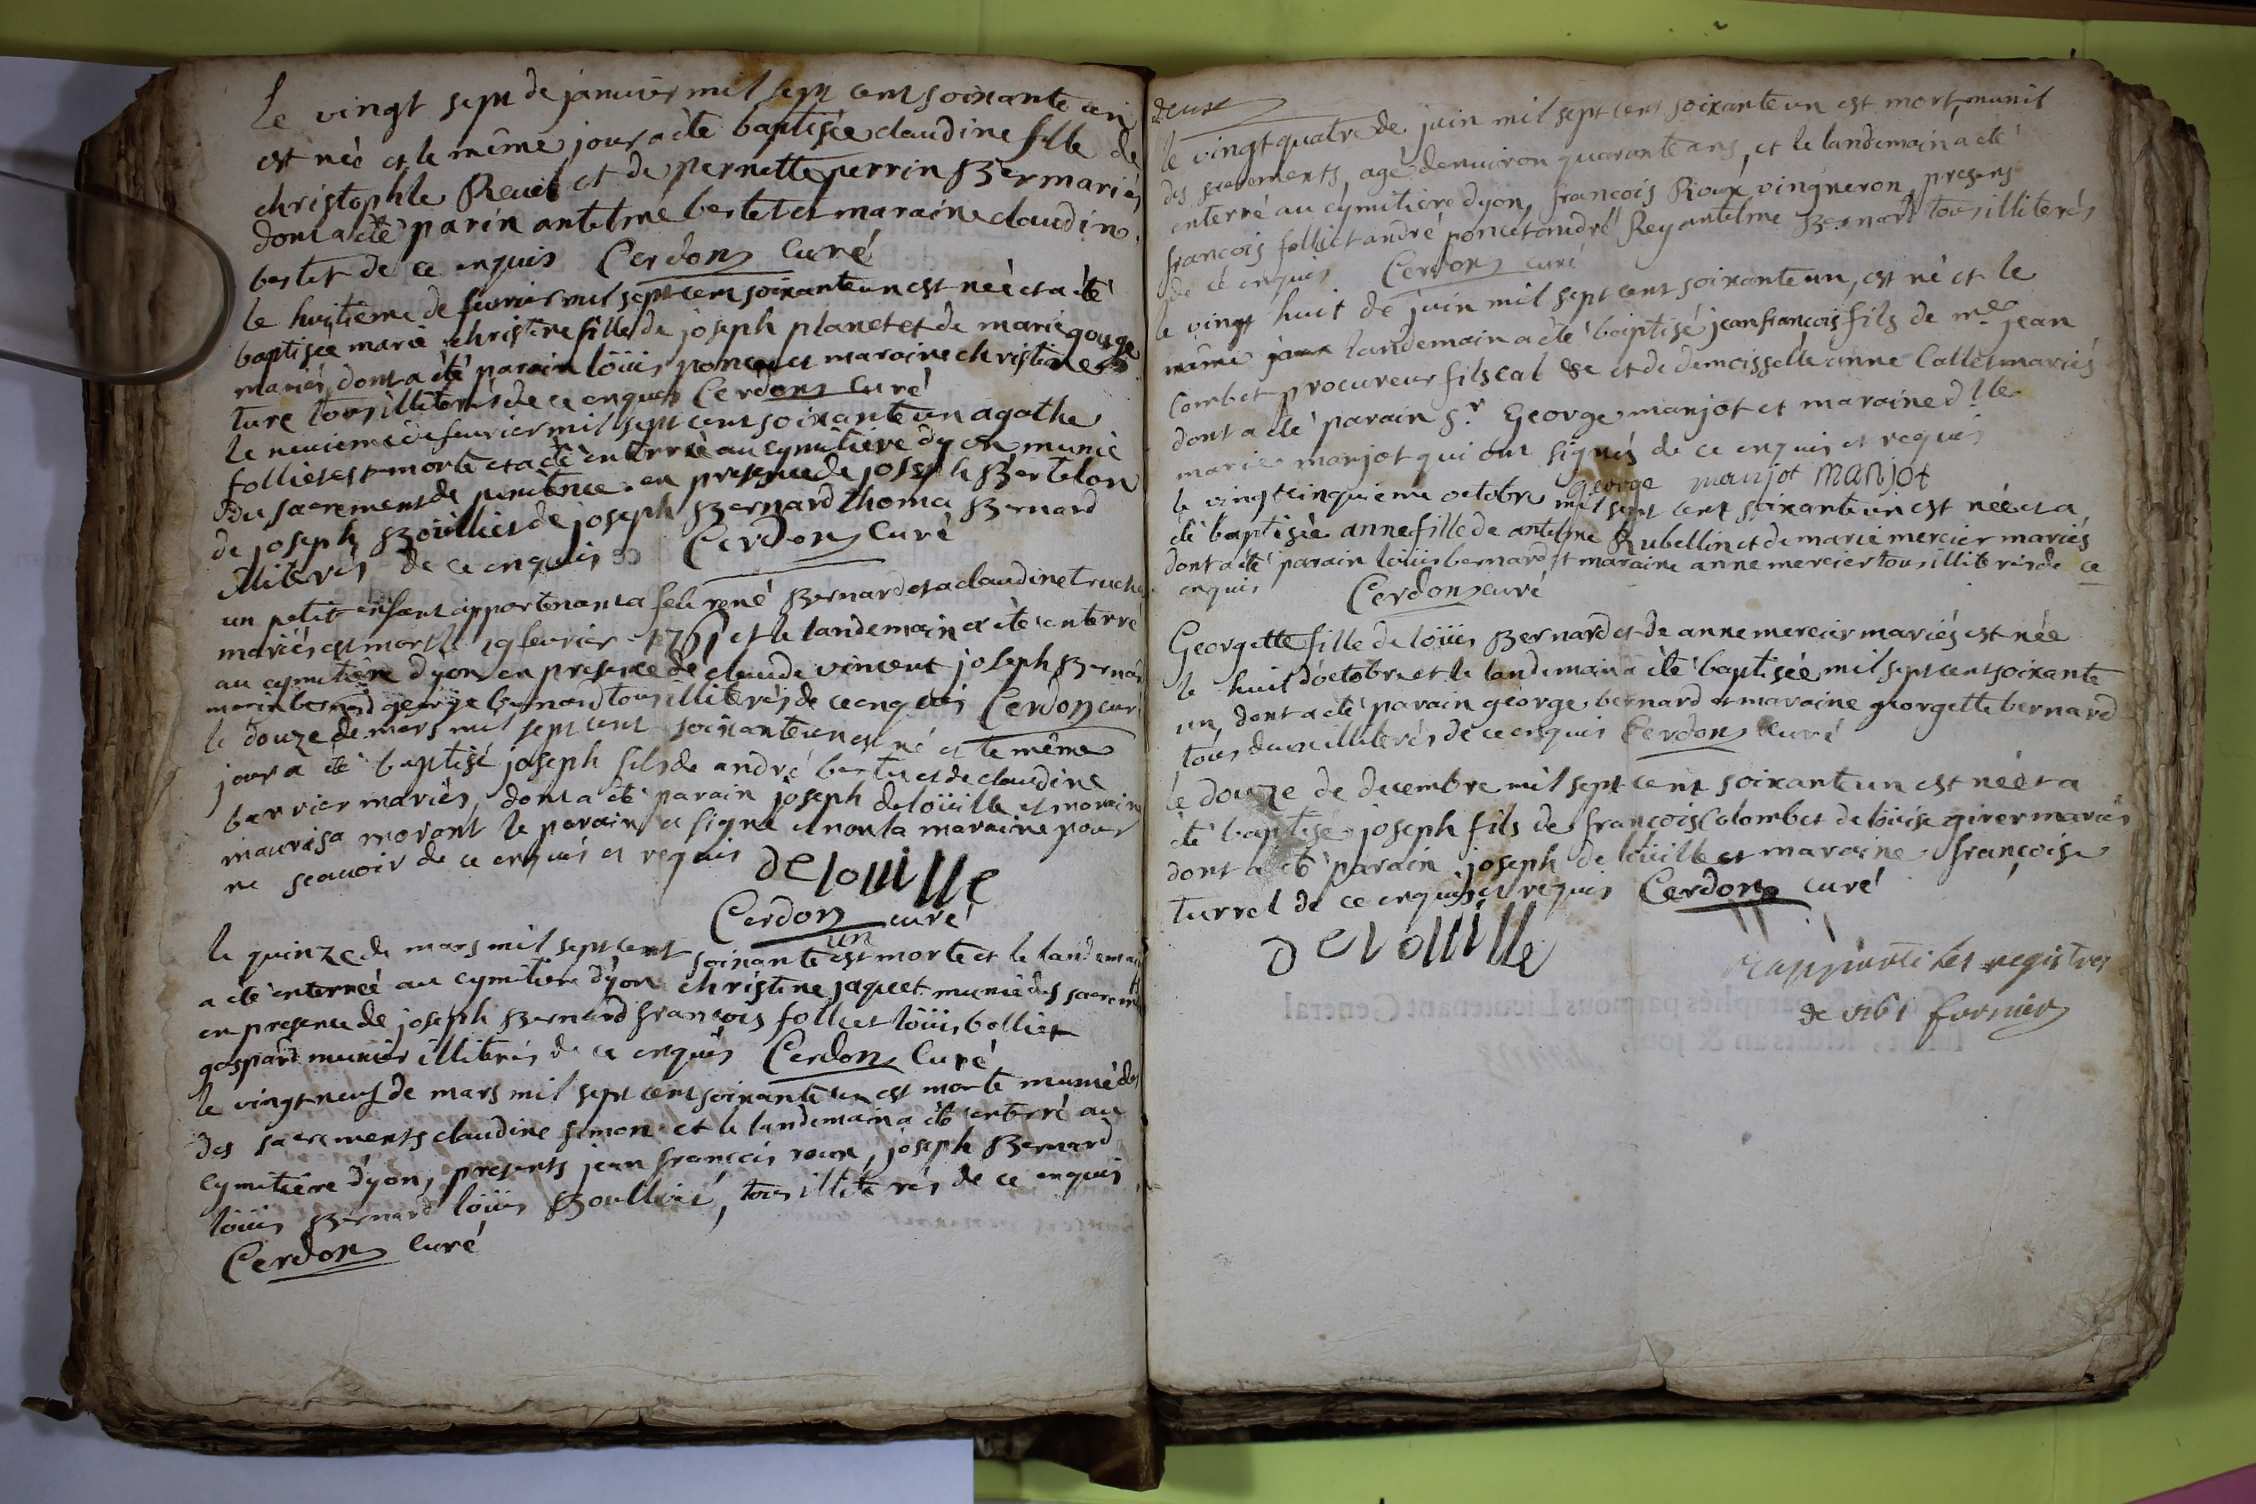 le vingt sept de janvier mil sept cent soixante un
est née et le même jour a èté baptisée claudine fille de
christophle Reveil et de pernette perrin Bermariés
dont a été parin antelme bertet et maraine claudin
bertet de ce enquis Cerdon Curé
le huitième de fevrier mil sept cent soixante un est née et a été
baptisée marie christine fille de joseph planet et de marie gouge
mariés, dont a été parain loüis poncet et maraine christine
ture tous illiterés de ce enquis Cerdon Curé
le neuvieme de fevrier mil sept cent soixante un agathe
folliet est morte et a été enterrée au cymitière dyon munie
du sacrement de penitence en presence de joseph Bertelon
de joseph Boüillier de joseph Bernard thoma Bernard
illiterés de ce enquis Cerdon Curé
un petit enfant appartenant a feu rené Bernard et a claudine truche
mariés est mort le 19 fevrier 1761 et le landemain a été enterré
au cymitière dyon en presence de claude vincent joseph Berna
marin bernard george bernard tous illiterés de ce enquis Cerdon cur
le douze de mars mil sept cent soixante un est né et le même
jour a été baptisé joseph fils de andré bertet et de claudine
barrier mariés, dont a été parain joseph deloüille et marain
maurisa morant le parain a signé et non la maraine pour
ne sçavoir de ce enquis et requis delouille
Cerdon curé
un
le quinze de mars mil sept cent soixante est morte et le landemai
a été enterrée au cymitière d'yon christine jaquet munie des sacrem
en presence de joseph Bernard françois folliet loüis bolliet
gaspard munier illiterés de ce enquis Cerdon Curé
le vingt neuf de mars mil sept cent soixante un est morte munie des
des sacrements claudine simon et le landemain a été enterré au
cymitière d'yon, presents jean françois roux, joseph Bernard
loüis Bernard loüis Boullié, tous illiterés de ce enquis
Cerdon Curé
deux
le vingt quatre de juin mil sept cent soixante un est mort, munit
des sacrements, agé denviron quarante ans, et le landemain a eté
enterré au cymitière dyon, françois Rioux vingneron, presens
françois folliet andré poncet andré Rey antelme Bernard tous illiterés
de ce enquis Cerdon curé
le vingt huit de juin mil sept cent soixante un, est né et le
même jour landemain a été baptisé jean françois fils de me jean
Combet procureur fiscal et de demoisselle anne Callet mariés
dont a été parain Sr. George manjot et maraine dlle
marie manjot qui ont signés de ce enquis et requis
george manjot manjot
le vingt cinquieme octobre mil sept cent soixante un est née et a
été baptisée anne fille de antelme Rubellin et de marie mercier mariés
dont a été parain loüis bernard et maraine anne mercier tous illiterés de ce
enquis Cerdon curé
Georgette fille de loüis Bernard et de anne mercier mariés est née
le huit d'octobre et le landemain a été baptisée mil sept cent soixante
un, dont a été parain george bernard et maraine georgette bernard
tous deux illiterés de ce enquis Cerdon Curé
le douze de decembre mil sept cent soixante un est né et a
été baptisé joseph fils de françois Colombet de loüise girer mariés
dont a été parain joseph de loüille et maraine françoise
turrel de ce enquis et requis Cerdon curé
delouille
rapporté les registres
de 1761 fornier